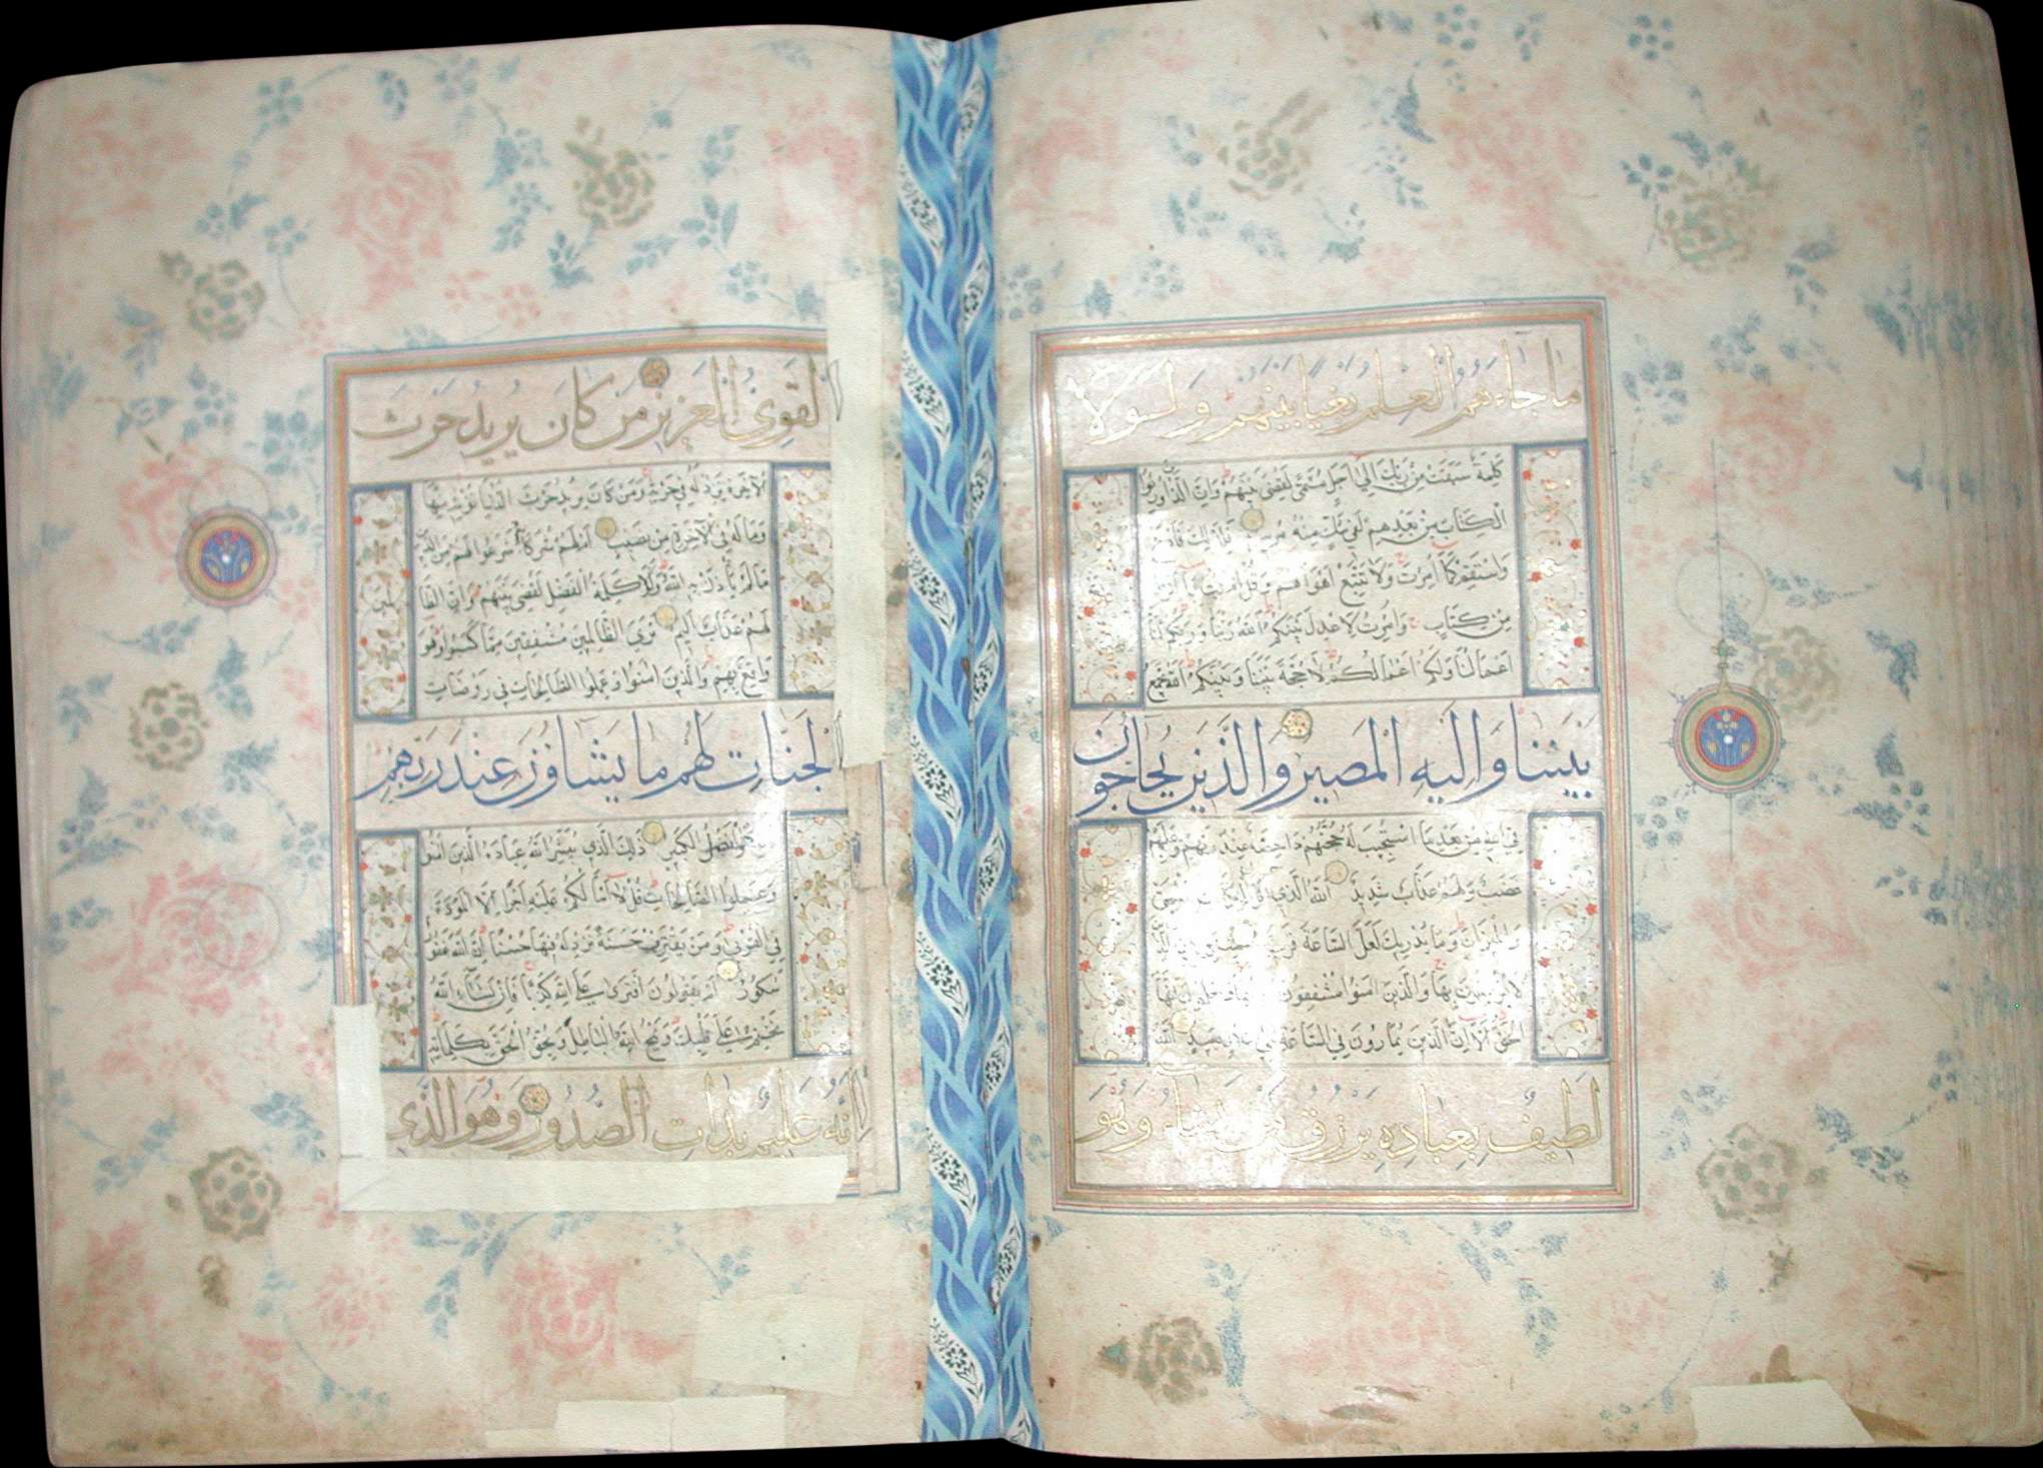 ما جاءهم العلم بغيا بينهم ولولا
كلمة سبقت من ربك الى اجل مسمى لقضى بينهم وان الذين اورثوا
الكتاب من بعدهم لفى شك منه مريب فلذلك فادع
واستقم كما امرت ولا تتبع اهواءهم وقل امنت بما انزل
من كتاب وامرت لاعدل بينكم الله ربنا وربكم لنا
اعمالنا ولكم اعمالكم لا حجة بيننا وبينكم الله يجمع
بيننا واليه المصير والذين يحاجون
فى الله من بعد ما استجيب له حجتهم داحضة عند ربهم وعليهم
غضب ولهم عذاب شديد الله الذى انزل الكتاب بالحق
والميزان وما يدريك لعل الساعة قريب
لا يؤمنون بها والذين امنوا مشفقون منها ويعلمون انها
الحق الا ان الذين يمارون فى الساعة لفى ضلال بعيد الله
لطيف بعباده يرزق من يشاء وهو
القوى العزيز من كان يريد حرث
الآخرة نزد له فى حرثه ومن كان يريد حرث الدنيا نؤته منها
وما له فى الآخرة من نصيب ام لهم شركاء شرعوا لهم من الدين
ما لم يأذن به الله ولولا كلمة الفصل لقضى بينهم وان الظالمين
لهم عذاب اليم ترى الظالمين مشفقين مما كسبوا وهو
واقع بهم والذين امنوا وعملوا الصالحات فى روضات
الجنات لهم ما يشاؤن عند ربهم
ذلك هو الفضل الكبير ذلك الذى يبشر الله عباده الذين امنوا
وعملوا الصالحات قل لا اسئلكم عليه اجرا الا المودة
فى القربى ومن يقترف حسنة نزد له فيها حسنا ان الله غفور
شكور ام يقولون افترى على الله كذبا فان يشاء الله
يختم على قلبك ويمح الله الباطل ويحق الحق بكلماته
انه عليم بذات الصدور وهو الذى